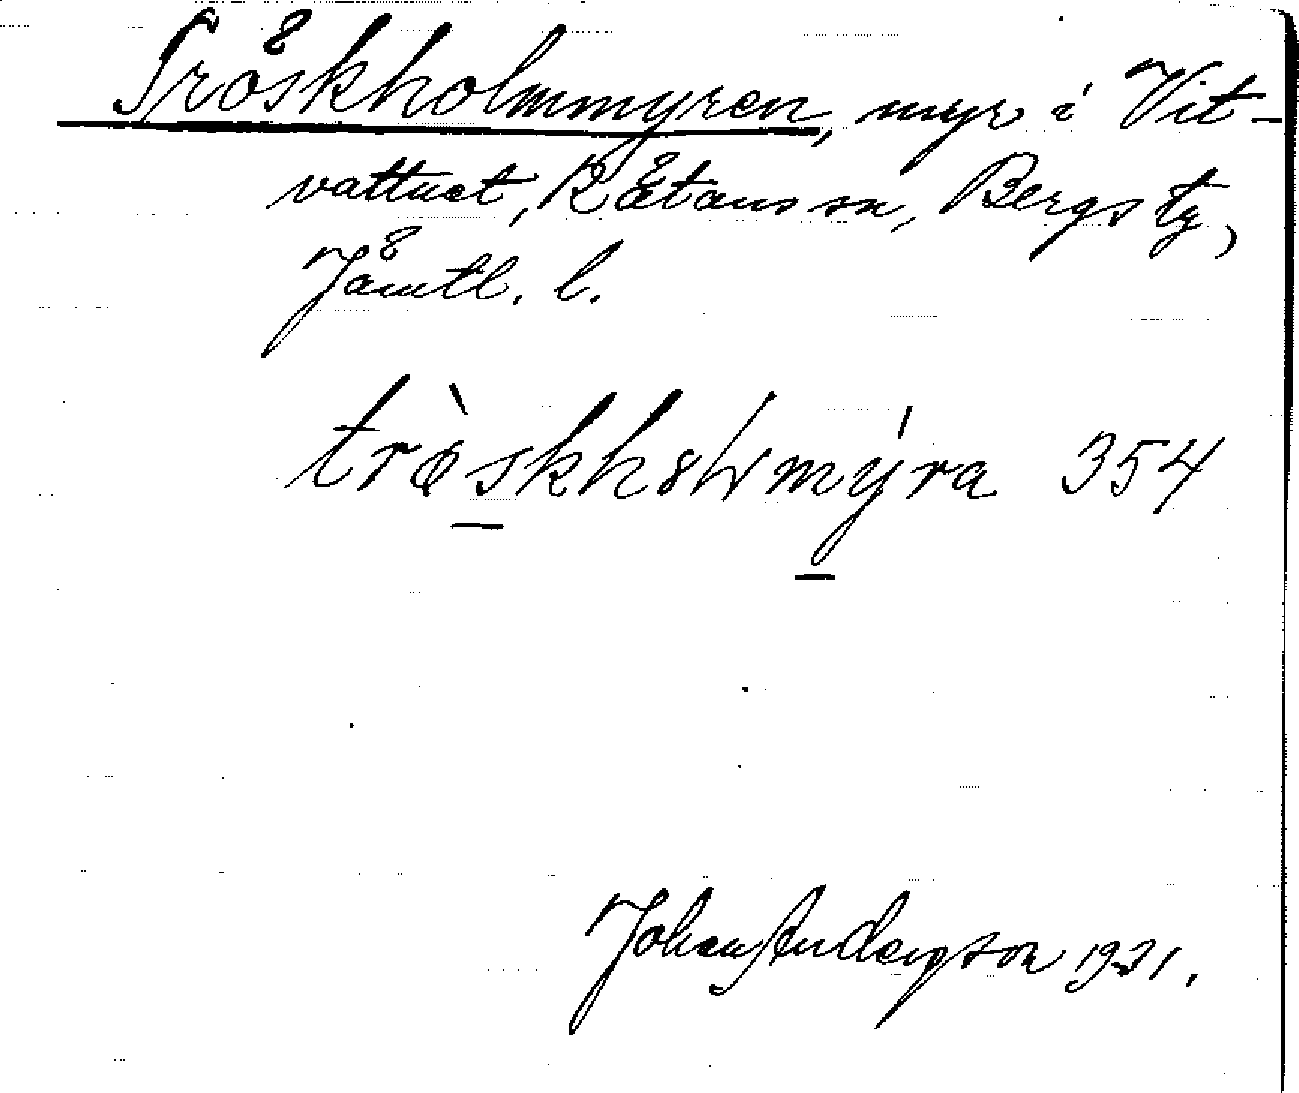 Tröskholmmyren, myr i Vit-
vattnet, Rätans sn, Bergs tg,
Jämtl. l.
trø̀skhɷlmýra 354
Johan Anderson 1931.